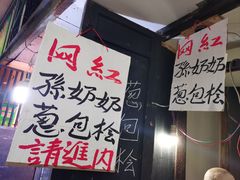 网紅
孫奶奶
蔥包桧
請進内
蔥包桧
网紅
孫奶奶
蔥包桧